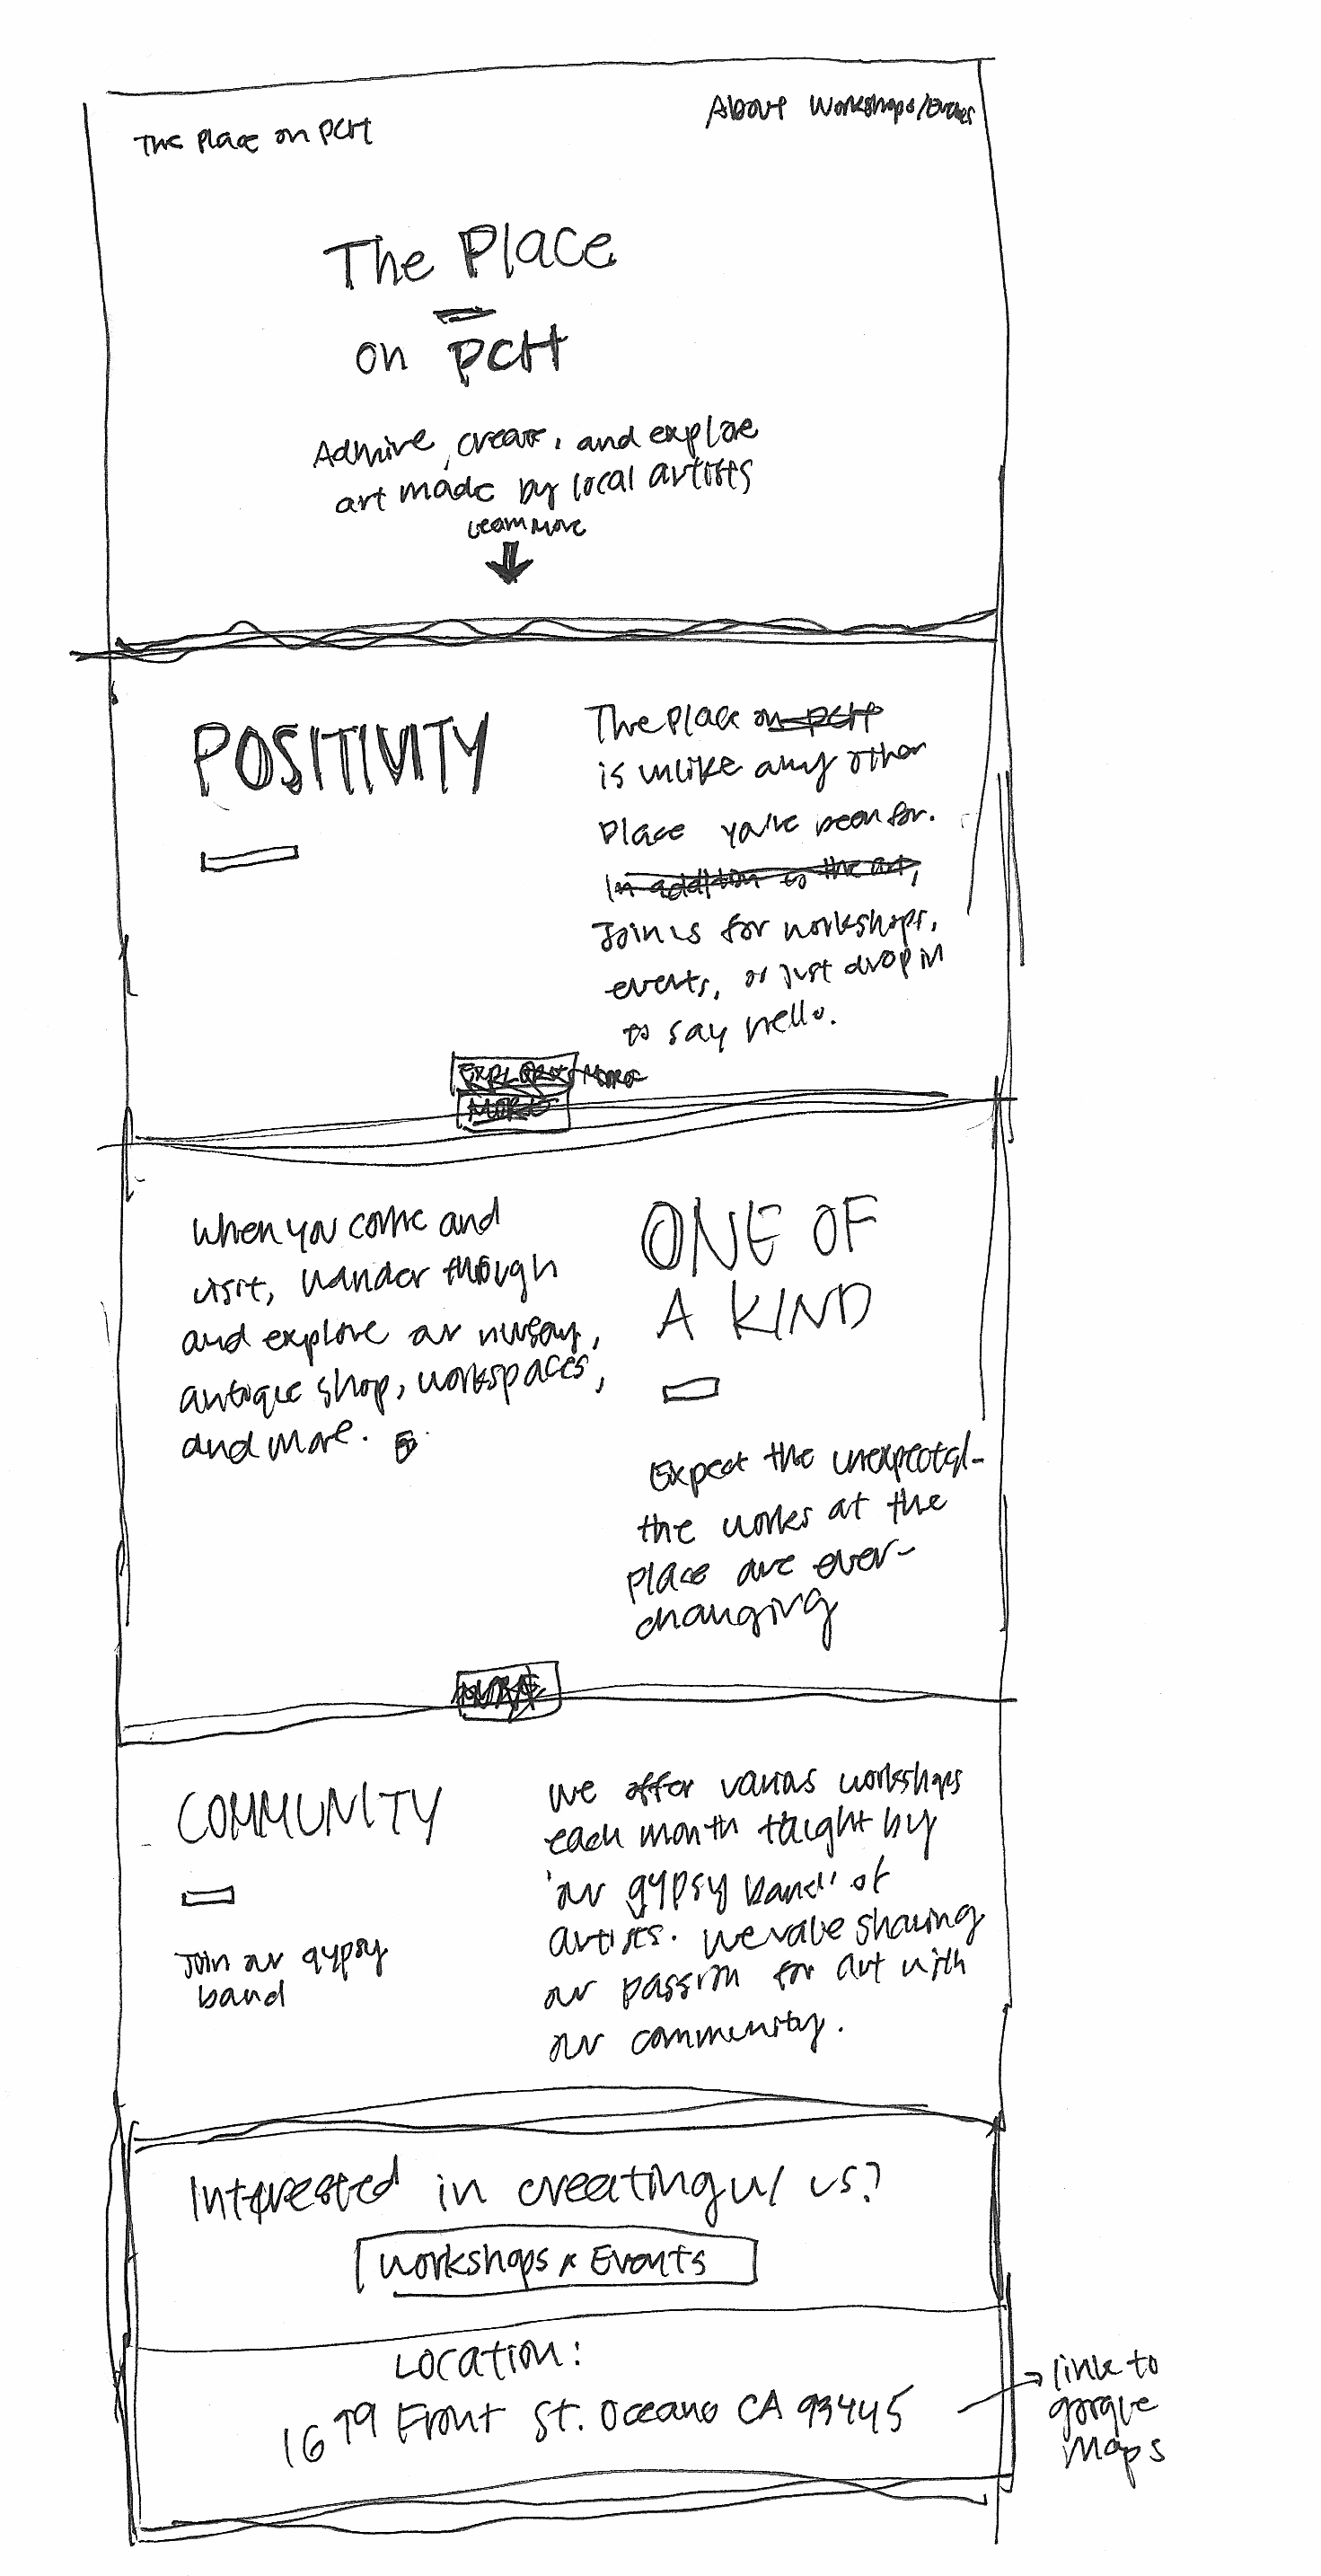 The Place on PCH
About Workshops/Events
The Place
on PCH
Admire, create, and explore
art made by local artists
Learn More
POSITIVITY
The Place on PCH
is unlike any other
Place you've been for.
In addition to the art,
Join us for workshops,
events, or just drop in
to say hello.
EXPLORE MORE
MORE
When you come and
visit, wander though
and explore our nursery,
antique shop, workspaces,
and more.
ONE OF
A KIND
Expect the unexpected -
the works at the
Place are ever-
changing
MORE
COMMUNITY
Join our gypsy
band
We offer various workshops
each month taught by
"our gypsy band" of
artists. We value sharing
our passion for art with
our community.
Interested in creating w/ us?
Workshops & Events
Location:
1679 Front St. Oceano CA 93445
link to
google
Maps